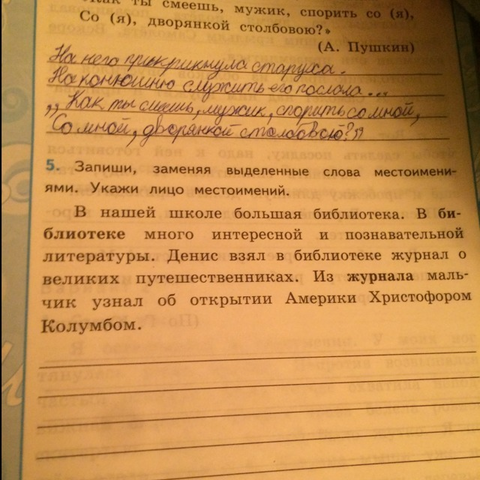 Как ты смеешь, мужик, спорить со (я),
Со (я), дворянкой столбовою?»
(А. Пушкин)
На него прикрикнула старуха.
На конюшню служить его послала...
,,Как ты смеешь, мужик, спорить со мной,
Со мной, дворянкой столбовою?"
5. Запиши, заменяя выделенные слова местоимени-
ями. Укажи лицо местоимений.
В нашей школе большая библиотека. В би-
блиотеке много интересной и познавательной
литературы. Денис взял в библиотеке журнал о
великих путешественниках. Из журнала маль-
чик узнал об открытии Америки Христофором
Колумбом.